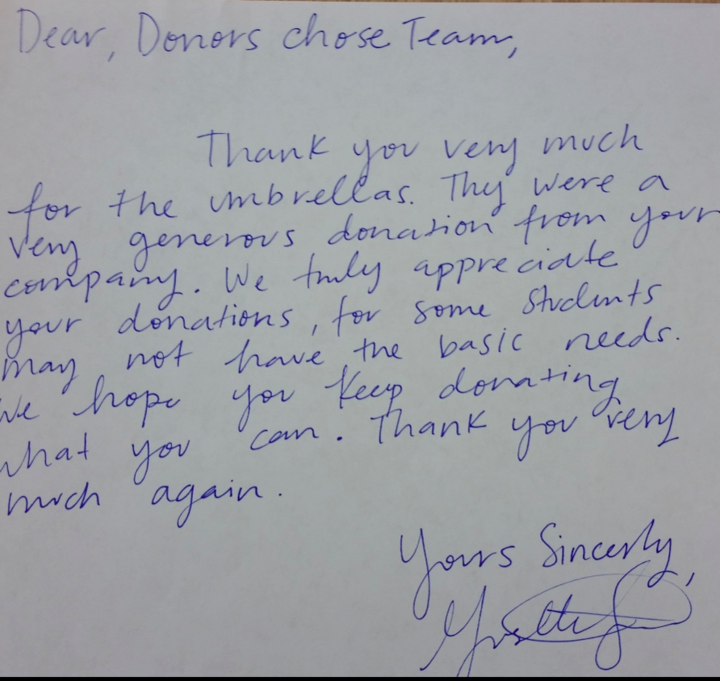 Dear, Donors chose Team,
Thank you very much
for the umbrellas. Thy were a
very generous donation from your
company. We truly appreciate
your donations, for some students
may not have the basic needs.
We hope you keep donating
what you can. Thank you very
much again.
Yours Sincerly,